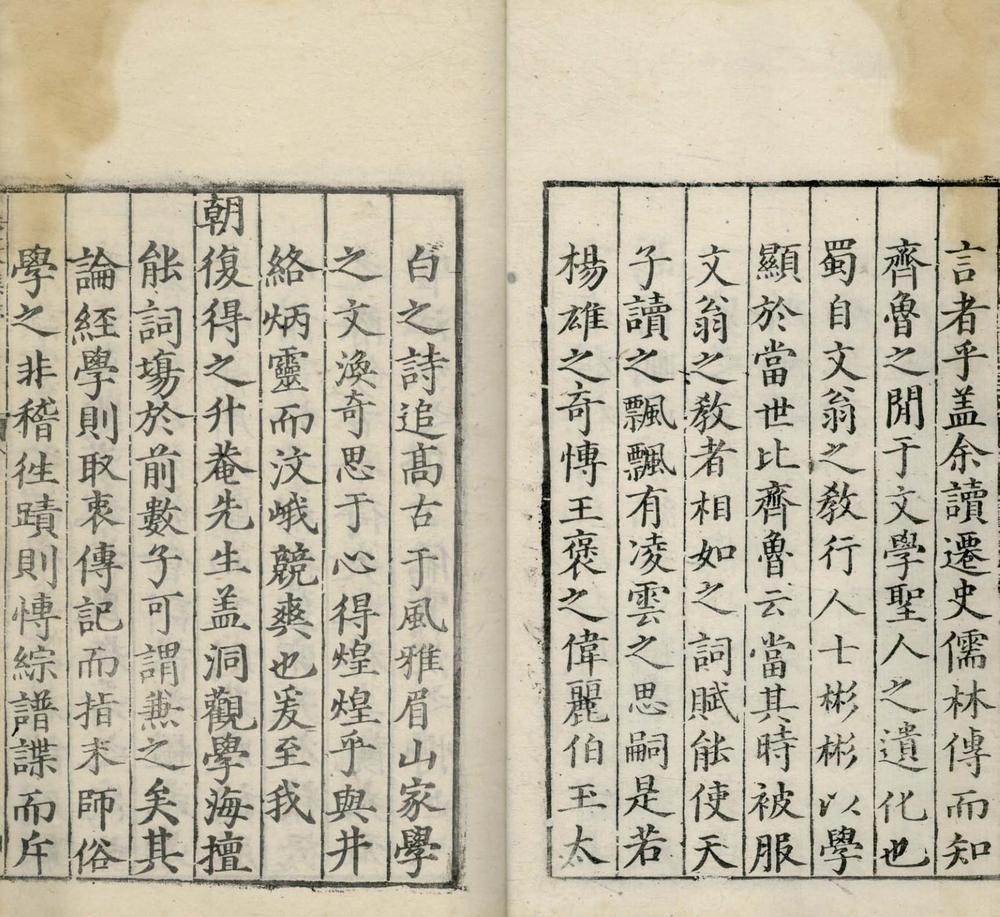 言者乎盖余讀遷史儒林傳而知
齊魯之閒于文學聖人之遺化也
蜀自文翁之教行人士彬彬以學
顯於當世比齊魯云當其時被服
文翁之教者相如之詞賦能使天
子讀之飄飄有凌雲之思嗣是若
楊雄之奇慱王褒之偉麗伯玉太
白之詩追髙古于風雅眉山家學
之文渙奇思于心得煌煌乎與井
絡炳靈而汶峨競爽也爰至我
朝復得之升菴先生盖洞觀學海擅
能詞塲於前數子可謂兼之矣其
論經學則取衷傳記而指末師俗
學之非稽徃蹟則慱綜譜諜而斥